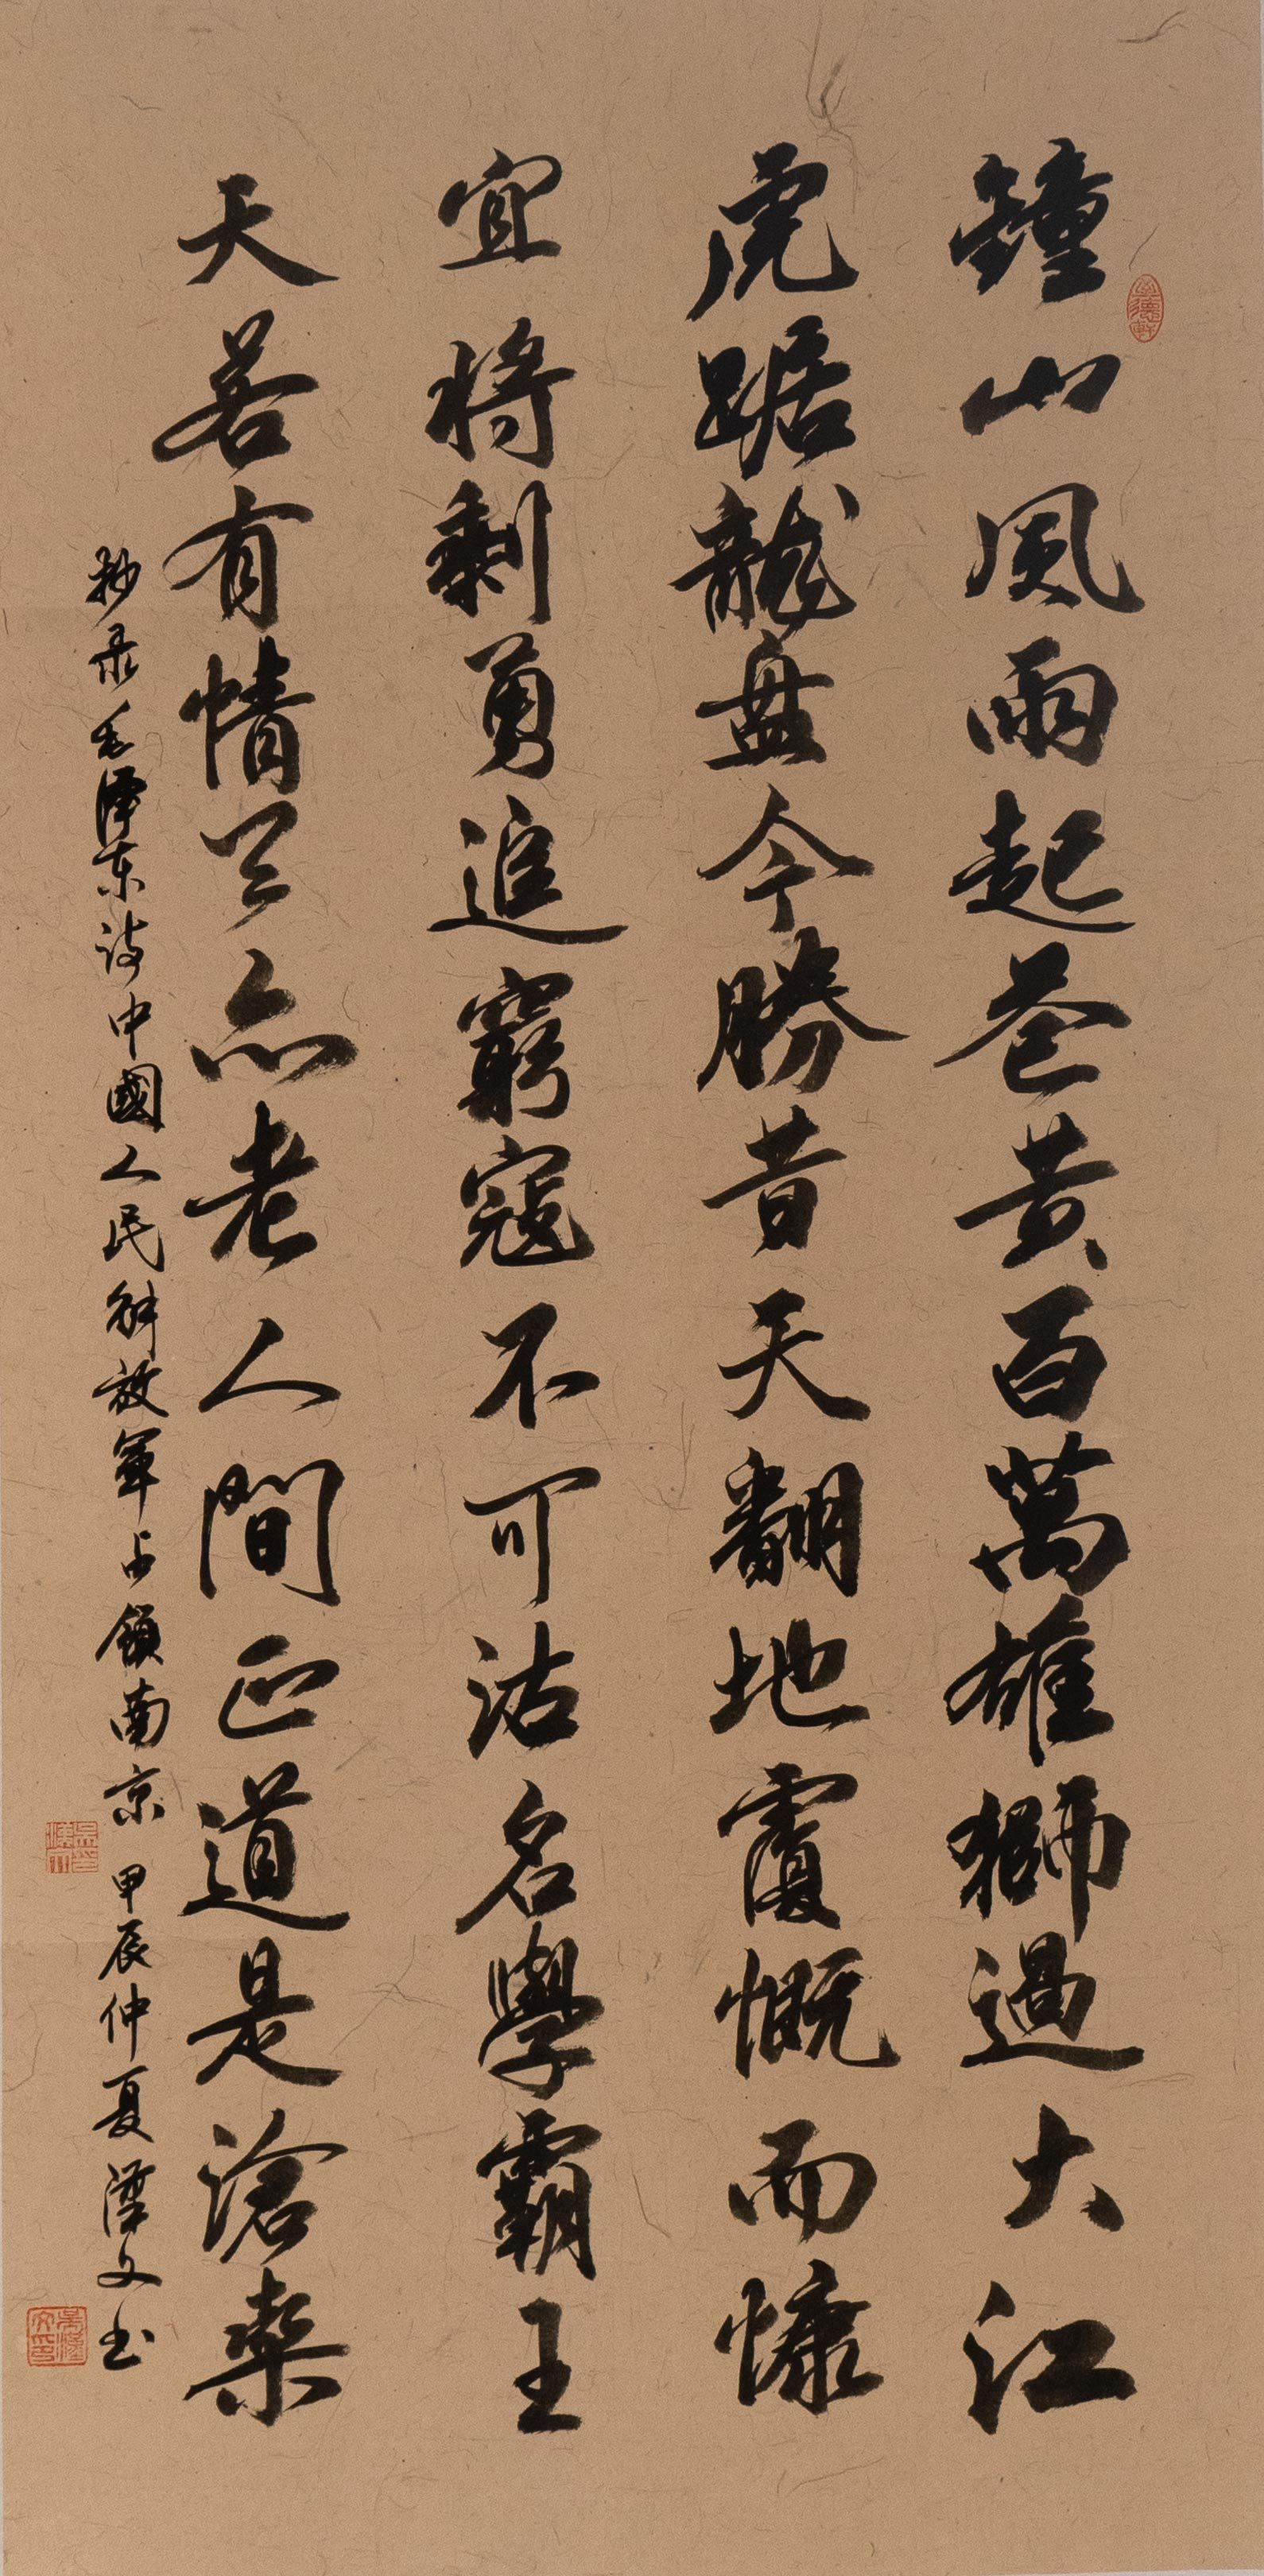 鐘山風雨起苍黄百萬雄獅過大江
虎踞龍盘今勝昔天翻地覆慨而慷
宜将剩勇追窮寇不可沽名學霸王
天若有情天亦老人間正道是滄桑
抄录毛澤东诗中國人民解放軍占領南京 甲辰仲夏 文书